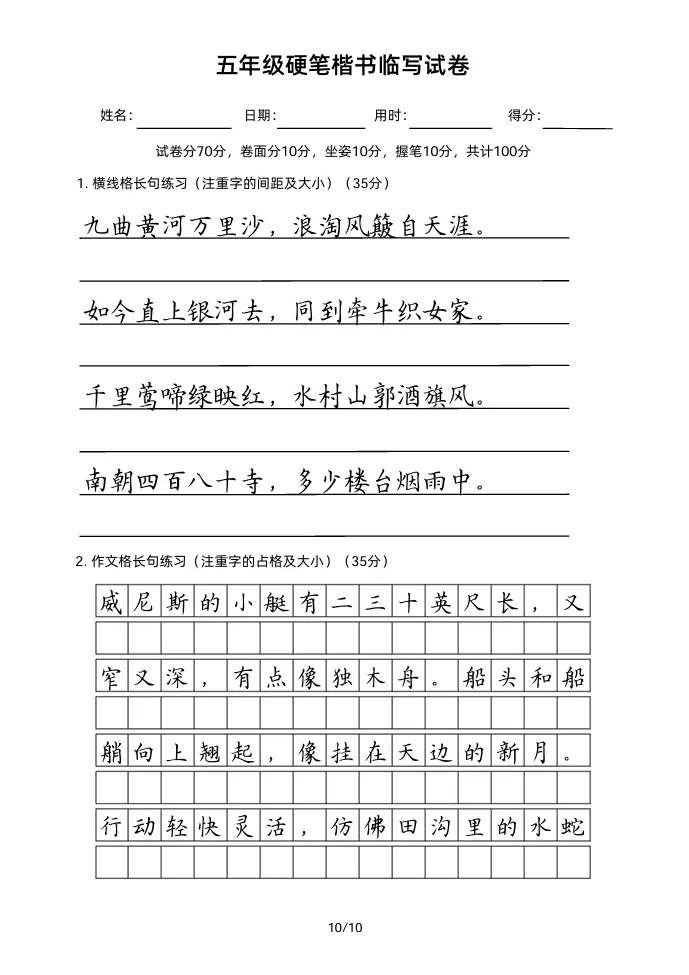 五年级硬笔楷书临写试卷
姓名： 日期： 用时： 得分：
试卷分70分，卷面分10分，坐姿10分，握笔10分，共计100分
1. 横线格长句练习（注重字的间距及大小）（35分）
九曲黄河万里沙，浪淘风簸自天涯。
如今直上银河去，同到牵牛织女家。
千里莺啼绿映红，水村山郭酒旗风。
南朝四百八十寺，多少楼台烟雨中。
2. 作文格长句练习（注重字的占格及大小）（35分）
威尼斯的小艇有二三十英尺长，又
窄又深，有点像独木舟。船头和船
艄向上翘起，像挂在天边的新月。
行动轻快灵活，仿佛田沟里的水蛇
10/10